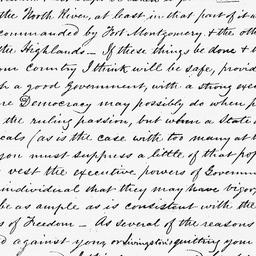 the North River, at least in that part of it w
commanded by Fort Montgomery, & the oth
the Highlands — If these things be done & t
our Country I think will be safe, provid
h a good Government, with a strong exec
re Democracy may possibly do when p
the ruling passion, but when a State a
cals (as is the case with too many at t
son must suppress a little of that pop
vest the executive powers of Governm
individual that they may have vigor,
be as ample as is consistent with the
s of Freedom — As several of the reasons
d against yours, or Livingston's quitting your